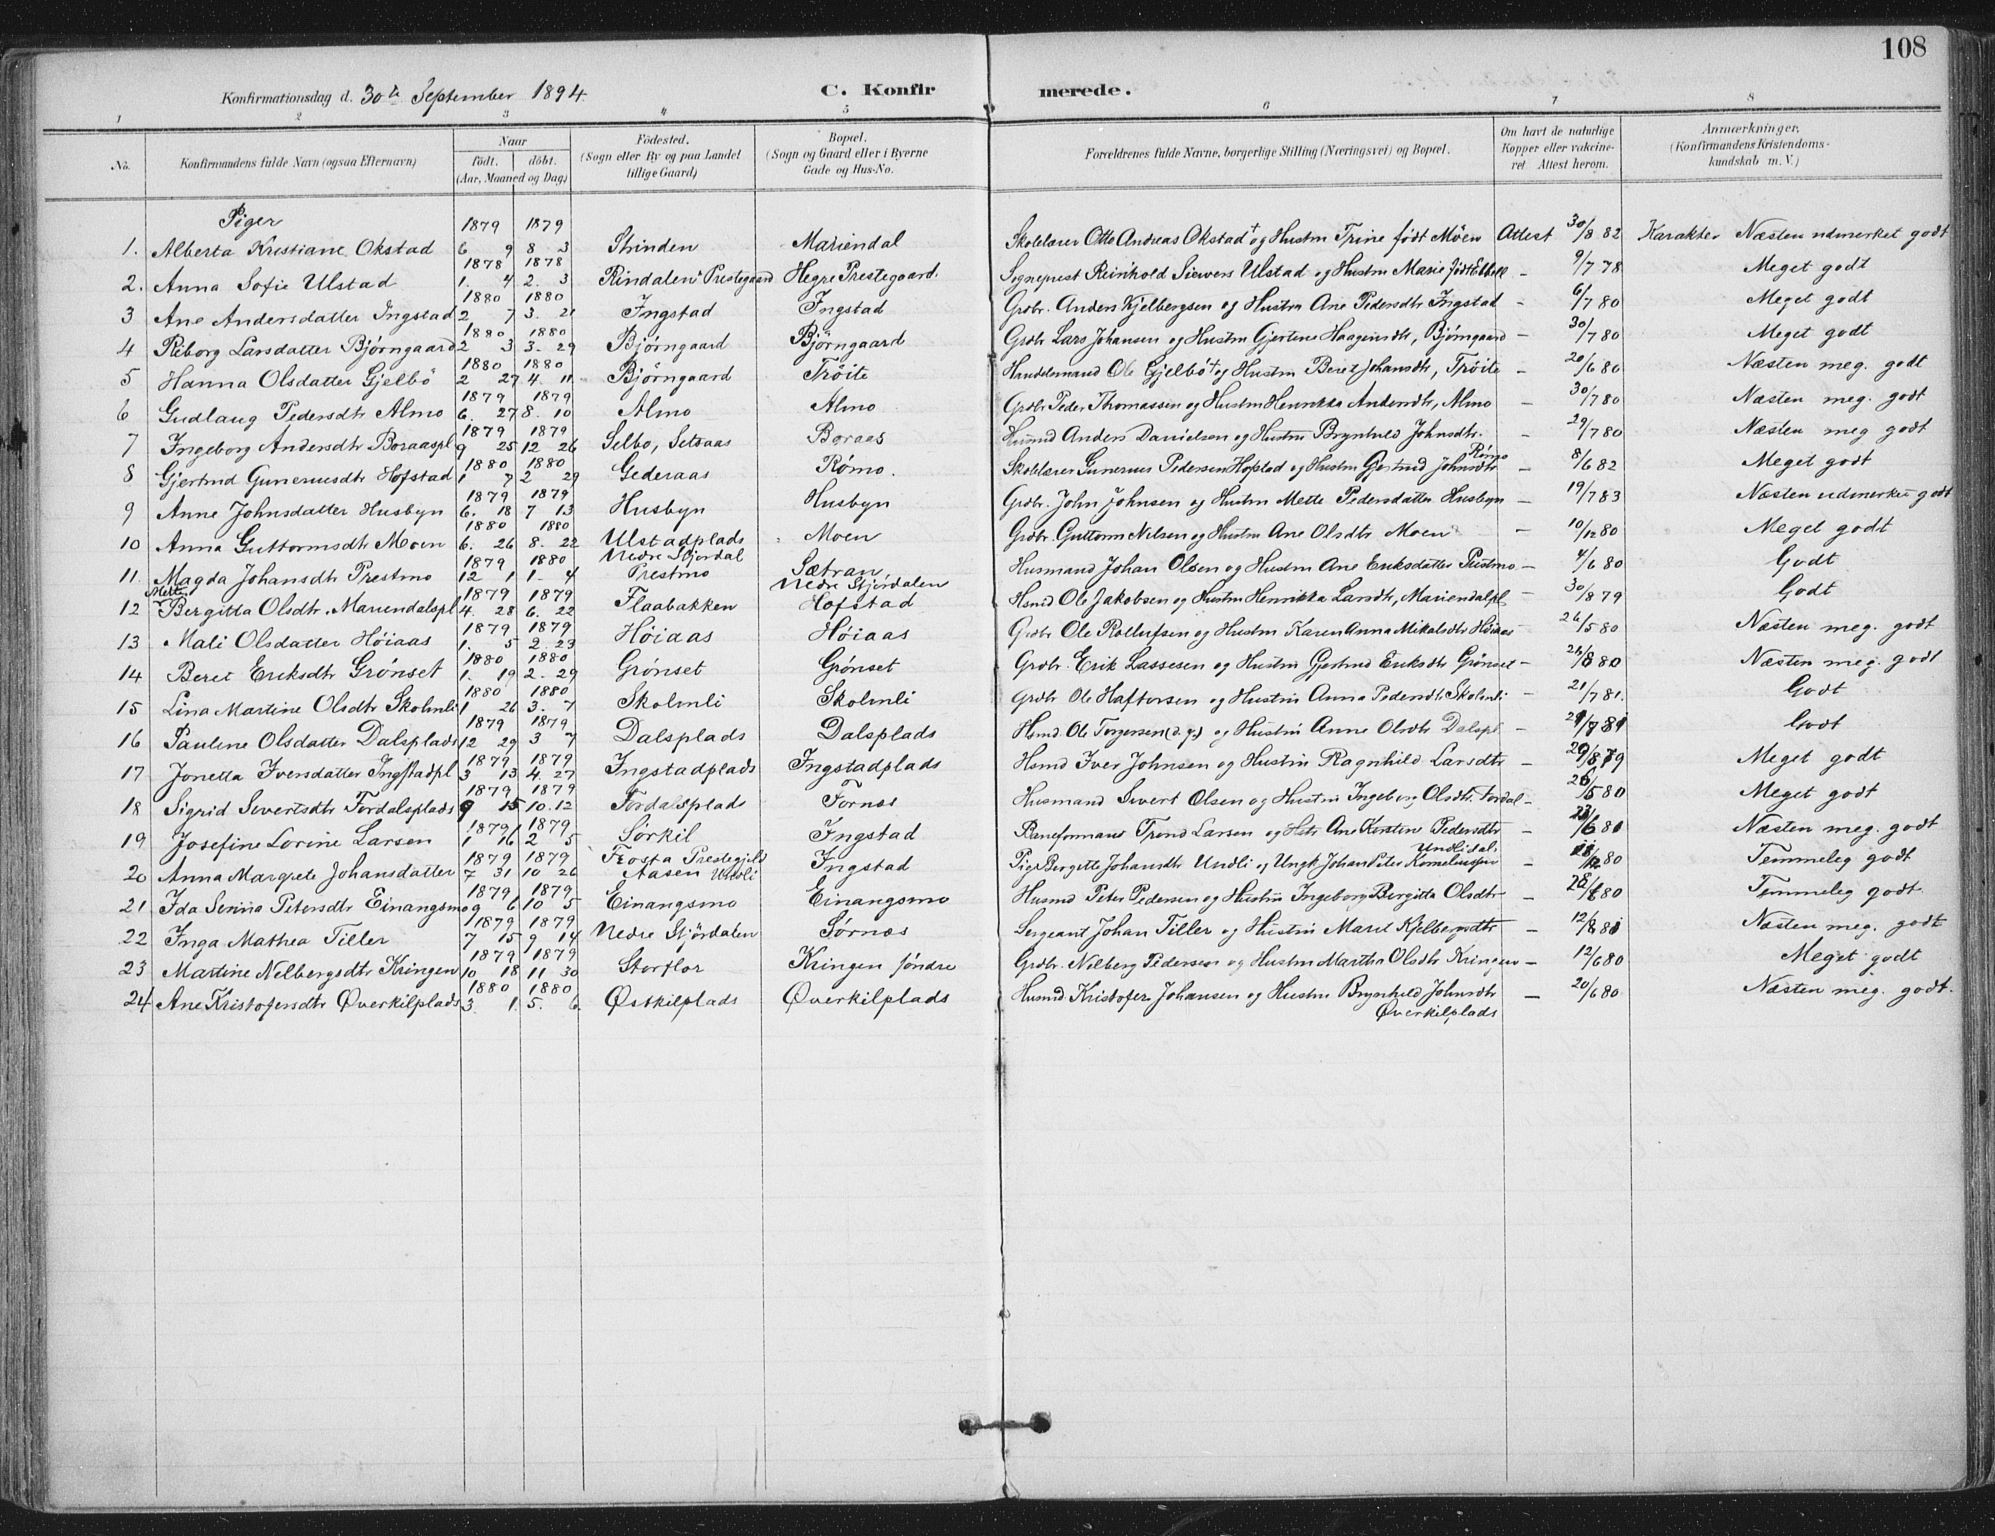 108
Konfirmationsdag d. 30te September 1894. C. Konfirmerede.
1 2 3 4 5 6 7 8
No. Konfirmandens fulde Navn (ogsaa Efternavn) Naar født. døbt. (Aar, Maaned og Dag) Fødested. (Sogn eller By og paa Landet tillige Gaard) Bopæl. (Sogn og Gaard eller i Byerne Gade og Hus-No. Forældrenes fulde Navne, borgerlige Stilling (Næringsvei) og Bopæl. Om havt de naturlige Kopper eller vakcineret Attest herom. Anmærkninger, (Konfirmandens Kristendomskundskab m. V.)
Piger
1. Alberta Kristiane Okstad 1879 6. 9 1879 8. 3 Strinden Mariendal Skolelærer Otto Andreas Okstad + og Hustru Trine født Möen Attest 30/8 82 Karakter Næsten udmerket godt
2. Anna Sofie Ulstad 1878 1. 4 1878 2. 3 Rindalen Prestegaard Hegre Prestegaard. Sogneprest Reinhold Siewers Ulstad og Hustru Marie født - 9/7 78 Meget godt
3 Ane Andersdatter Ingstad 1880 2 7 1880 3. 21 Ingstad Ingstad Grdbr. Anders Kjelbergsen og Hustru Ane Pedersdtr Ingstad - 6/7 80 Meget godt
4 Reborg Larsdatter Bjørngaard 1880 2 3 1880 3. 29 Bjørngaard Bjørngaard Grdbr Lars Johansen og Hustru Gjertine Haagensdtr, Bjørngaard - 30/7 80 Meget godt
5 Hanna Olsdatter Gjelbö 1880 2 27 1880 4. 11 Bjørngaard Tröite Ole Gjelbö + og Hustru Beret Johansdtr, Tröite - 20/6 80 Næsten meg. godt
6 Gudlaug Pedersdtr Almo 1879 6. 27 1879 8. 10 Almo Almo Grdbr Peder Thomassen og Hustru Henrikka Andersdtr, Almo - 30/7 80 Næsten meg. godt
7 Ingeborg Andersdtr Boraaspl 1879 9 25 1879 12 26 Selbo, Setsaas Boraas Husmd Anders Danielsen og Hustru Brynhild Johnsdtr. - 29/7 80 Næsten meg godt
8 Gjertrud Gunerusdtr Hofstad 1880 1 7 1880 2 29 Gederaas Rømo. Skolelærer Gunerius Pedersen Hofstad og Hustru Gjertrud Johnsdtr Rømo - 8/6 82 Meget godt
9 Anne Johnsdatter Husbyn 1879 6. 18 1879 7 13 Husbyn Husbyn Grdbr. John Johnsen og Hustru Mette Pedersdatter Husbyn - 19/7 83 Næsten udmerket godt
10 Anna Guttormsdtr Moen 1880 6. 26 1880 8. 22 Ulstadplads Moen Grdbr. Guttorm Nilsen og Hustru Ane Olsdtr Moen - 10/12 80 Meget godt
11. Magda Johansdtr Prestmo 1879 12 1 1880 1. 4 Nedre Stjørdal Prestmo Sætran, Nedre Stjørdalen Husmand Johan Olsen og Hustru Ane Eriksdatter Prestmo - 4/6 80 Godt
12 Bergitta Olsdtr. Mariendalspl 1879 4. 28 1879 6. 22 Flaabakken Hofstad Hsmd Ole Jakobsen og Hustru Henrikka Larsdtr, Mariendalpl - 30/8 79 Godt
13 Mali Olsdatter Höiaas 1879 1. 5 1879 2. 23 Höiaas Höiaas Grdbr Ole Rollufsen og Hustru Karen Anna Mikalsdtr Höiaas 26/5 80 Næsten meg. godt
14 Beret Eriksdtr Grönset 1880 1. 19 1880 2. 29 Grönset Grönset Grdbr. Erik Lassesen og Hustru Gjertrud Eriksdtr Grönset - 26/8 80 Næsten meg. godt
15 Lina Martine Olsdtr Skolmli 1880 1 26 1880 3. 7 Skolmli Skolmli Grdbr Ole Haftorsen og Hustru Anna Pedersdtr Skolmli 21/7 81. Godt
16 Pauline Olsdatter Dalsplads 1879 12 29 1879 3 7 Dalsplads Dalsplads Hsmd. Ole Torgersen (d. y.) og Hustru Anne Olsdtr Dalspl - Godt
17 Jonetta Iversdatter Ingstadpl 1879 3 13 1879 4. 27 Ingstadplads Ingstadplads Hsmd Iver Johnsen og Hustru Ragnhild Larsdtr - 29/8 79 Meget godt
18 Sigrid Sivertsdtr Fordalsplads 1879 9 15 1879 10. 12 Fordalsplads Fornes Husmand Sivert Olsen og Hustru Ingeborg Olsdtr. Fordal - Meget godt
19 Josefine Lorine Larsen 1879 1 16 1879 2 5 Sörkil Ingstad Baneformand Trond Larsen og Hstr Ane Kirstin Pedersdtr - Næsten meg. godt
20 Anna Margrete Johansdatter 1879 7 31 1879 10 26 Frosta Prestegjeld Aasen Undli Ingstad Pige Bergitte Johansdtr Undli og Ungk. Johan Peter Korneliussen Undlidal. - Temmeleg godt
21 Ida Serina Petersdtr Einangsmo 1879 9 6 1879 10 5 Einangsmo Einangsmo Husmd Peter Pedersen og Hustru Ingeborg Bergitta Olsdtr - Temmeleg godt.
22 Inga Mathea Tiller 1879 7 15 1879 9 14 Nedre Stjördalen Sørnæs Sergeant Johan Tiller og Hustru Marit Kjelbergsdtr - 12/8 81 Næsten meg. godt
23 Martine Nilbergsdtr Kringen 1879 10 18 1879 11 30 Storflor Kringen söndre Grdbr. Nilberg Pedersen og Hustru Martha Olsdtr Kringen - 12/6 80 Meget godt
24 Ane Kristofersdtr Øverkilplads 1880 3. 1. 1880 5. 6. Østkilplads Øverkilplads Husmd Kristofer Johansen og Hustru Brynhild Johnsdtr Øverkilplads - 20/6 80 Næsten meg. godt.